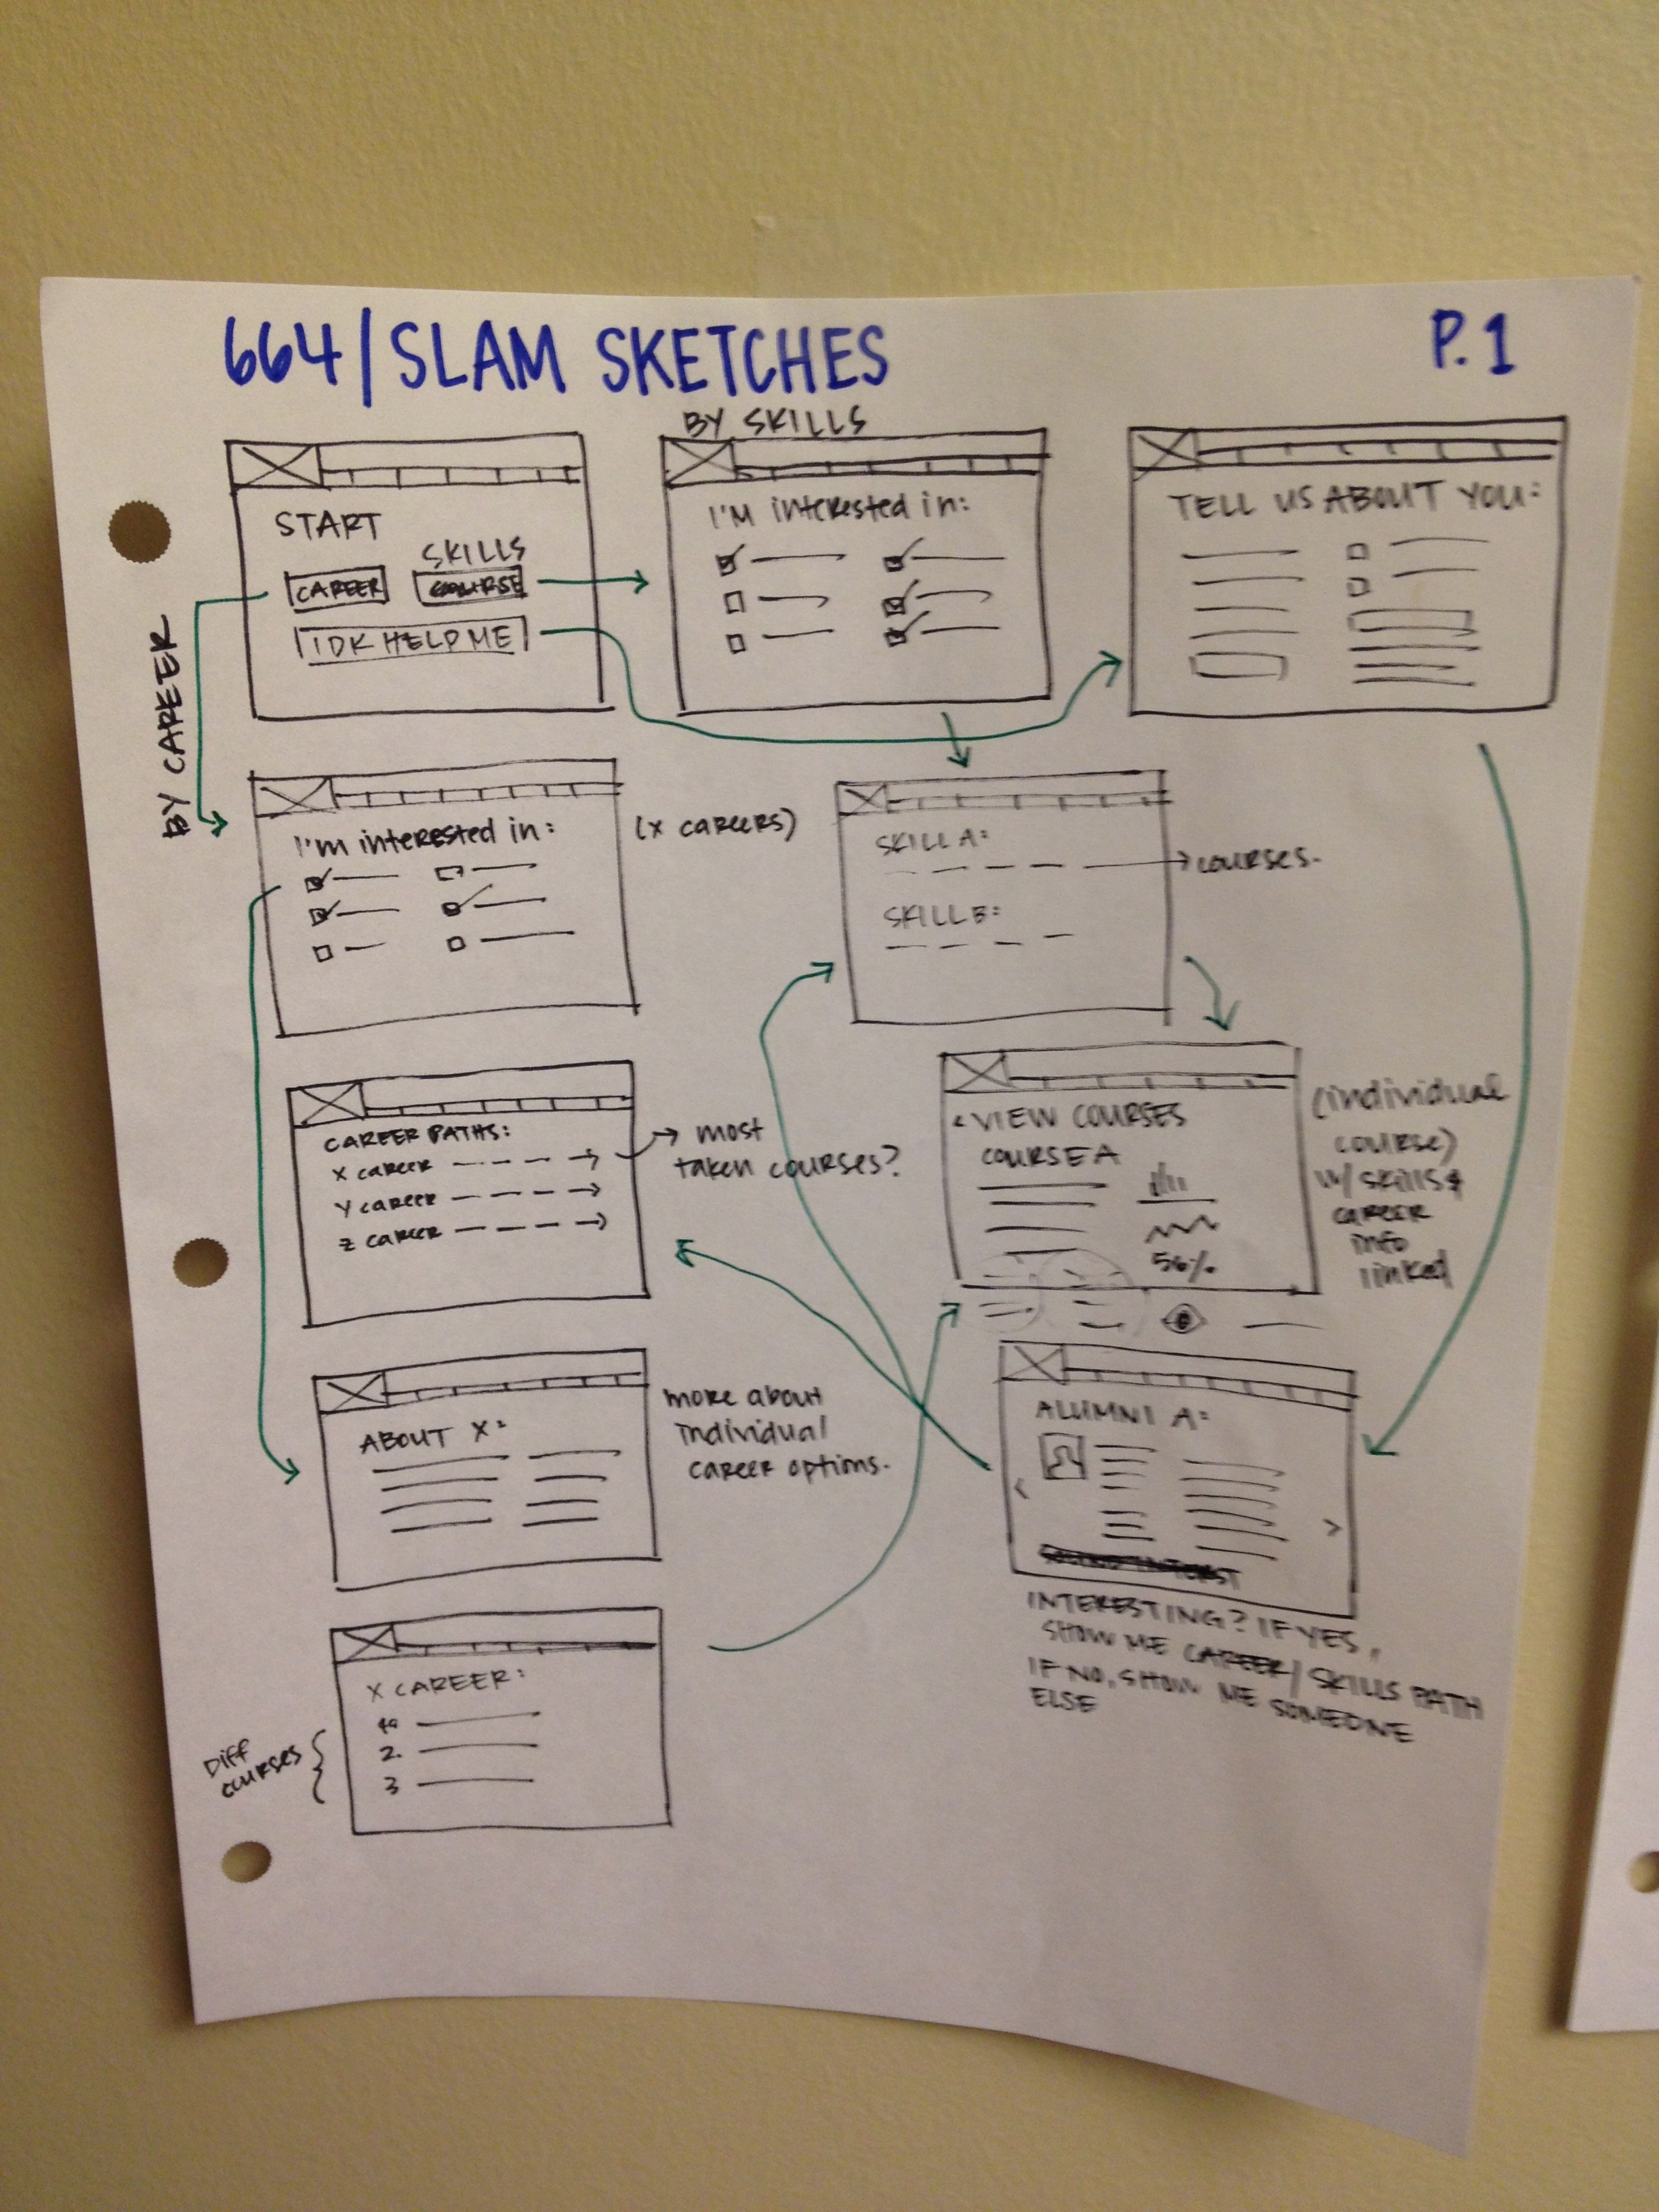 664/SLAM SKETCHES
P.1
START
SKILLS
CAREER
COURSE
IDK HELP ME
BY SKILLS
I'M interested in:
TELL US ABOUT YOU:
BY CAREER
I'm interested in:
(X CAREERS)
SKILL A:
courses.
SKILL B:
CAREER PATHS:
X career
Y career
Z career
most
taken courses?
< VIEW COURSES
COURSE A
56%
(individual
course)
w/ skills &
career
info
linked
ABOUT X:
more about
individual
career options.
ALUMNI A:
<
>
INTERESTING? IF YES,
SHOW ME CAREER/SKILLS PATH
IF NO, SHOW ME SOMEONE
ELSE
X CAREER:
2.
3
Diff
courses